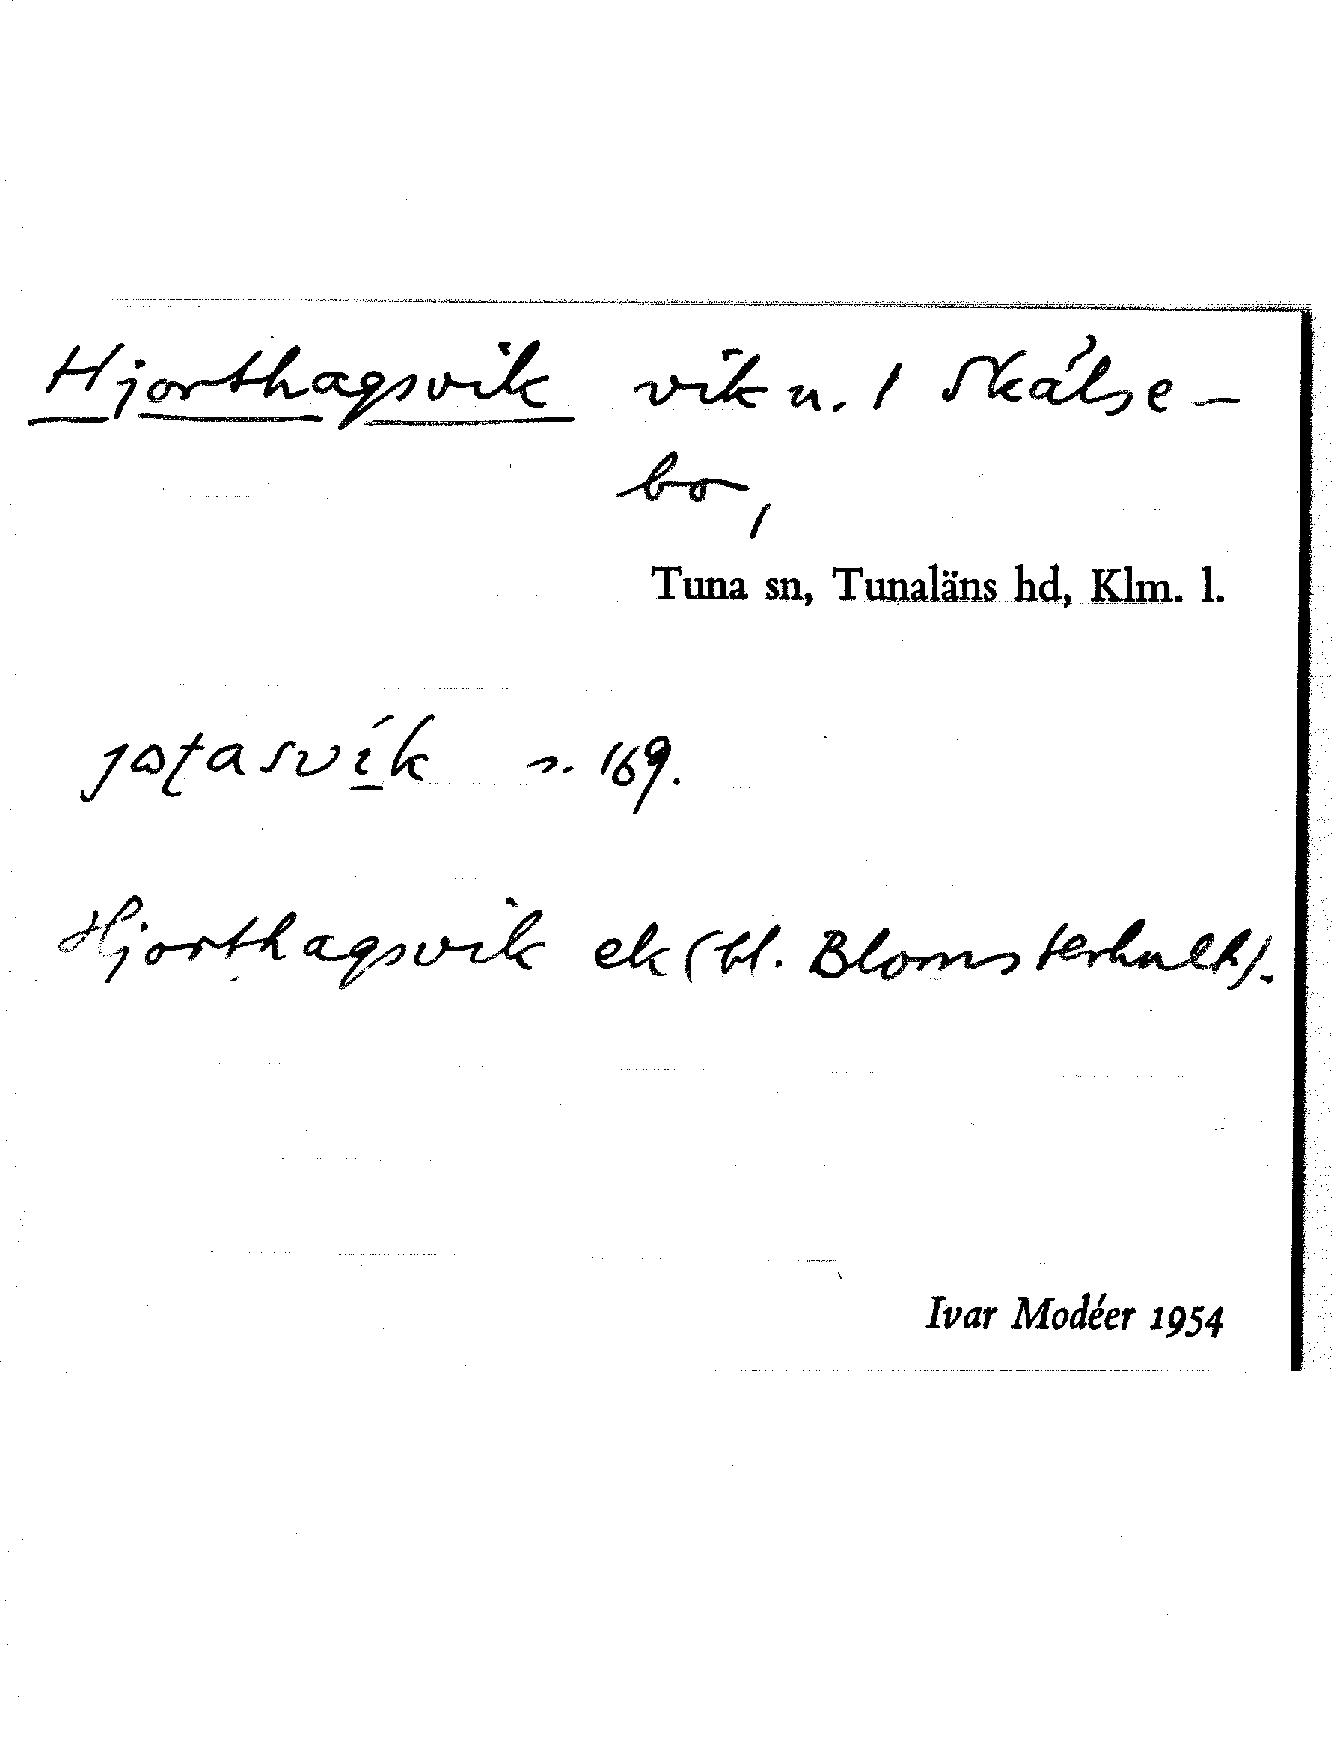 Hjorthagsvik vik n. 1 Skälse-
bo,
Tuna sn, Tunaläns hd, Klm. l.
s. 169.
Hjorthagsvik ek (bl. Blomsterhult).
Ivar Modéer 1954